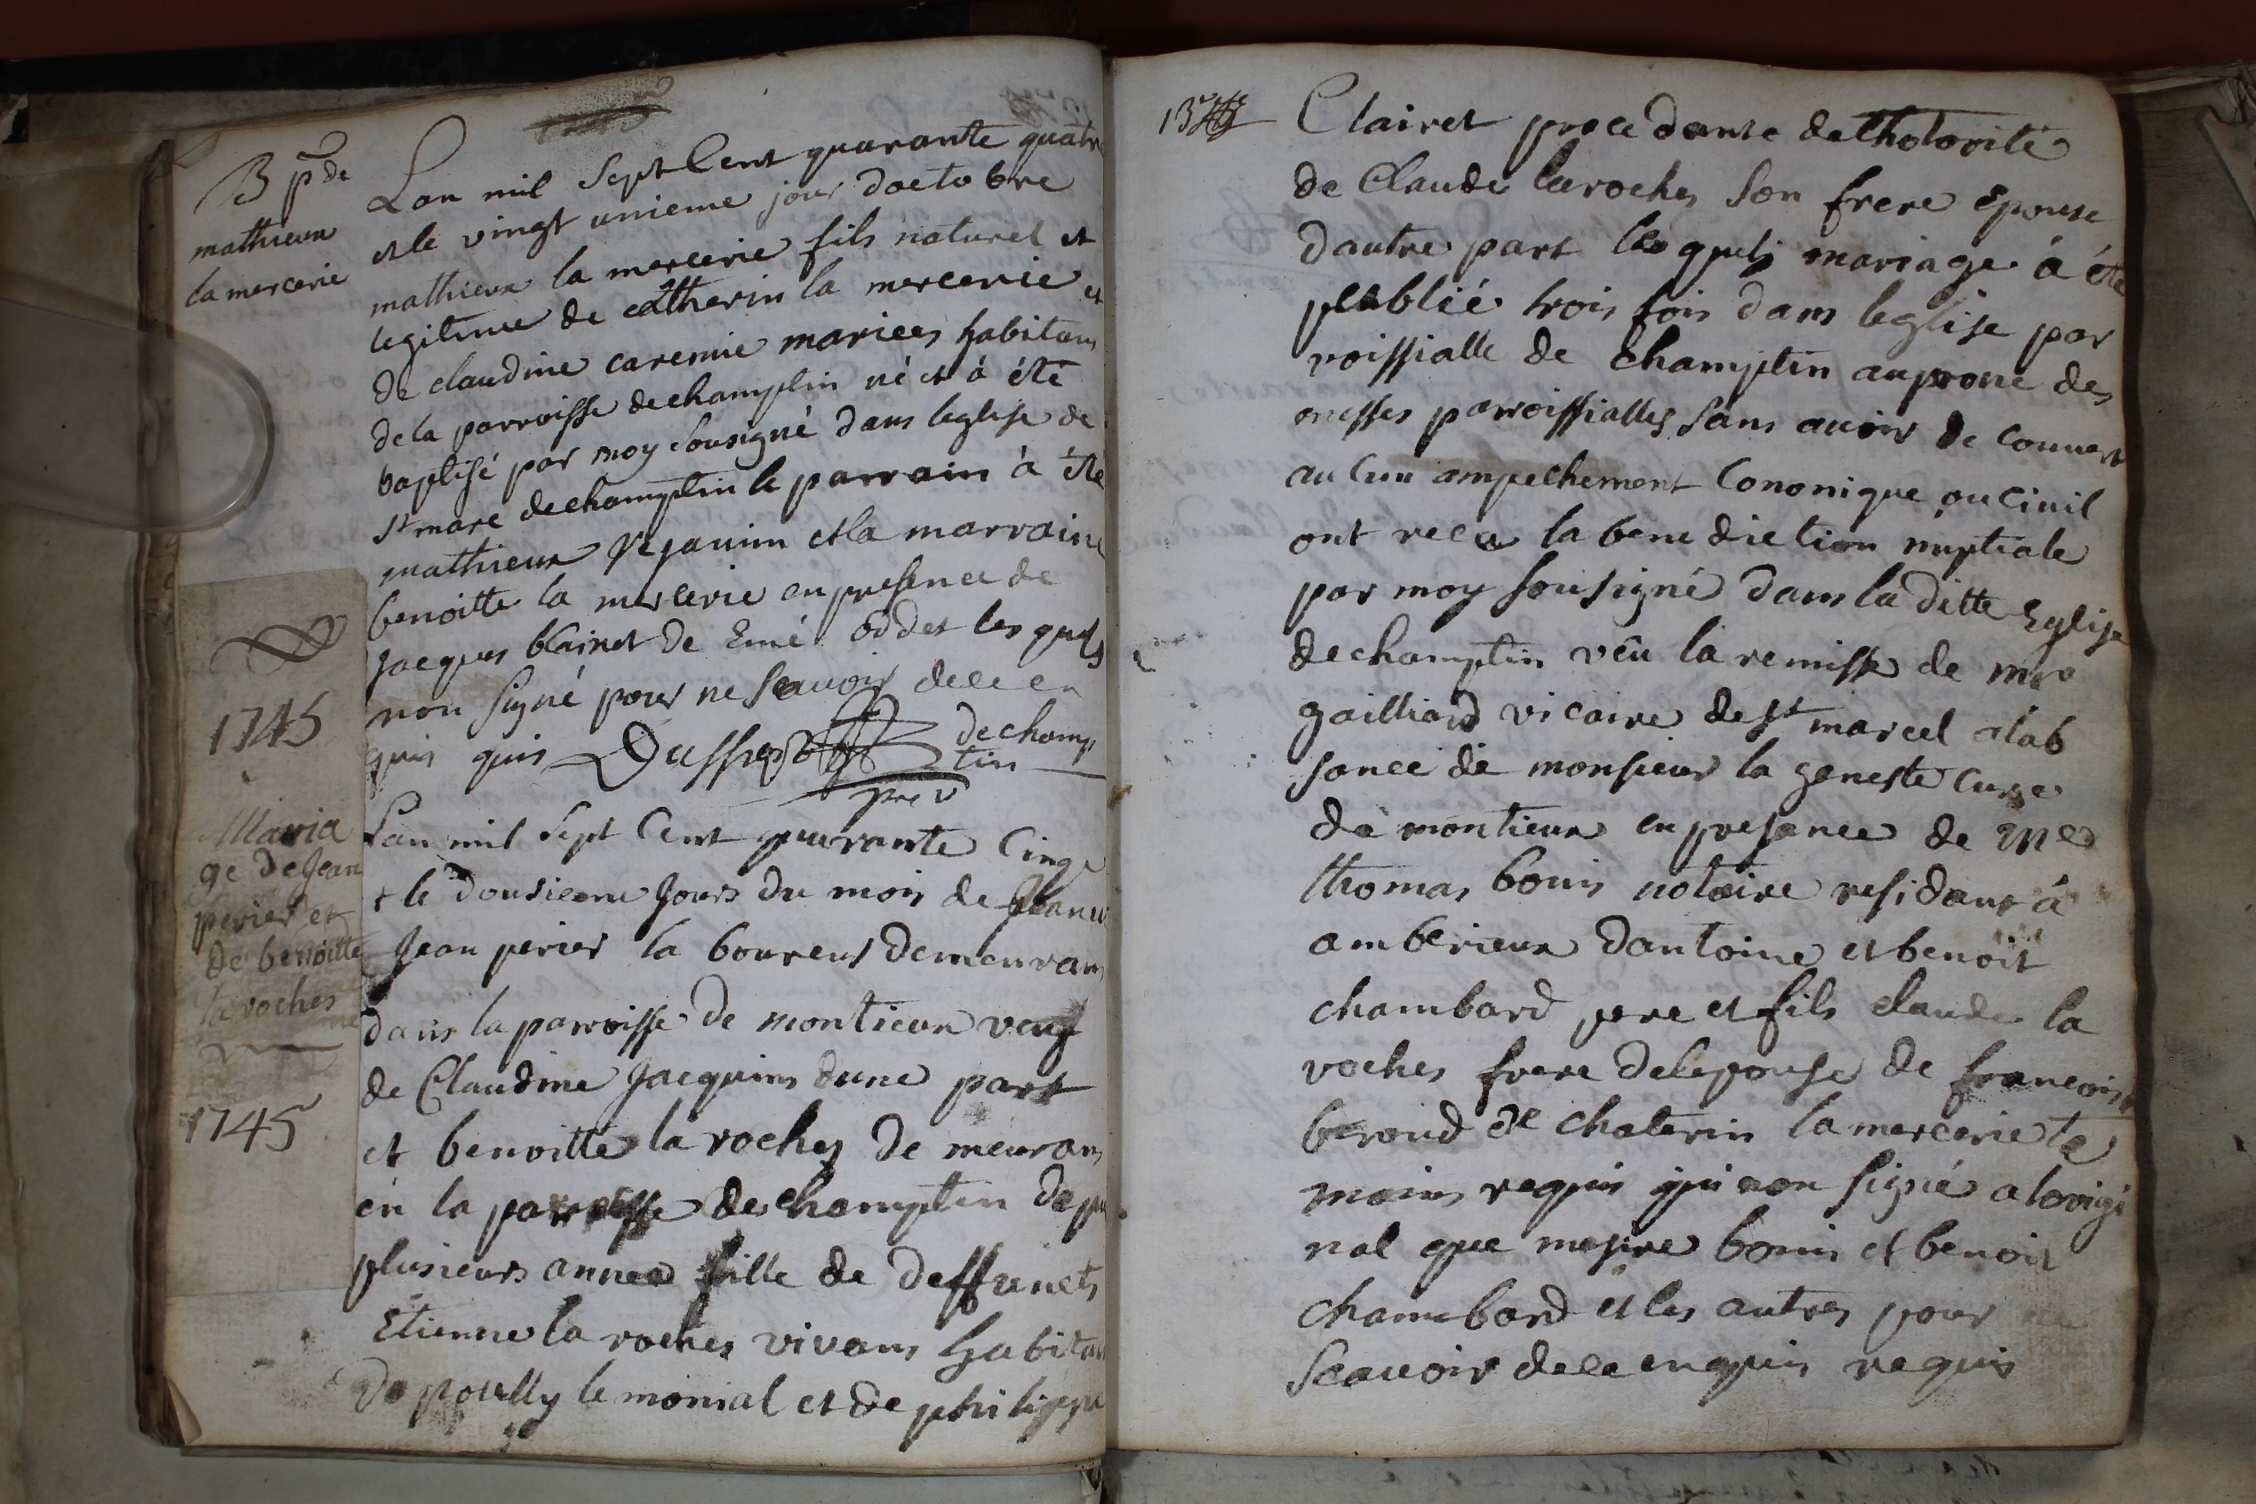 B p de
mathieux
la mercerie
Lan mil Sept Cent quarante quatre
et le vingt unieme jour doctobre
mathieux la mercerie fils naturel et
legitime de catherin la mercerie et
de claudine caremie mariees habitans
de la parroisse de champtin né et à été
baptisé par moy sousigné dans leglise de
St marc de champtin le parrain à été
mathieux et la marraine
benoitte la mercerie en presence de
Jacques blainet de Emé oddet les quels
non signé pour ne scavoir de ce en
quis quis Dussupt de champ
tin
pre v
1745
Maria
ge de Jean
perier et
de benoitte
la roches
1745
Lan mil Sept Cent quarante Cinqe
et le dousieme Jours du mois de Jeanvi
Jean perier la boureus demeurans
dans la parroisse de montieux veuf
de Claudine Jacquins dune part
et benoitte la roches de meurans
en la parroisse de champtin depu
plusieurs annee fille de deffunets
Etienne la roches vivans habitans
de poully le monial et de philippe
13e
Clairet procedante de Lhotorité
de Claude laroches son frere Epouse
dautre part les quels mariage à été
publié trois fois dans leglise par
roissialle de Champtin au prone des
messes parroissialles sans avoir de couvert
au cun ampechement Cononique ou Civil
ont recu la bene diction nuptiale
par moy sousigné dans la ditte Eglise
de champtin vêu la remisse de mre
gailliard vicaire de St marcel alab
sance de monsieur la geneste Cure
de montieux en presence de Me
thomas bouis notaire residant à
amberieux dantoine et benoit
chambard pere et fils claude la
roches frere de lepouse de francois
beroud et chaterin la mercerie te
moins requis qui non signé a lorigi
nal que mesire bouis et benoit
chambard et les autres pour ne
scavoir de ce enquis requis